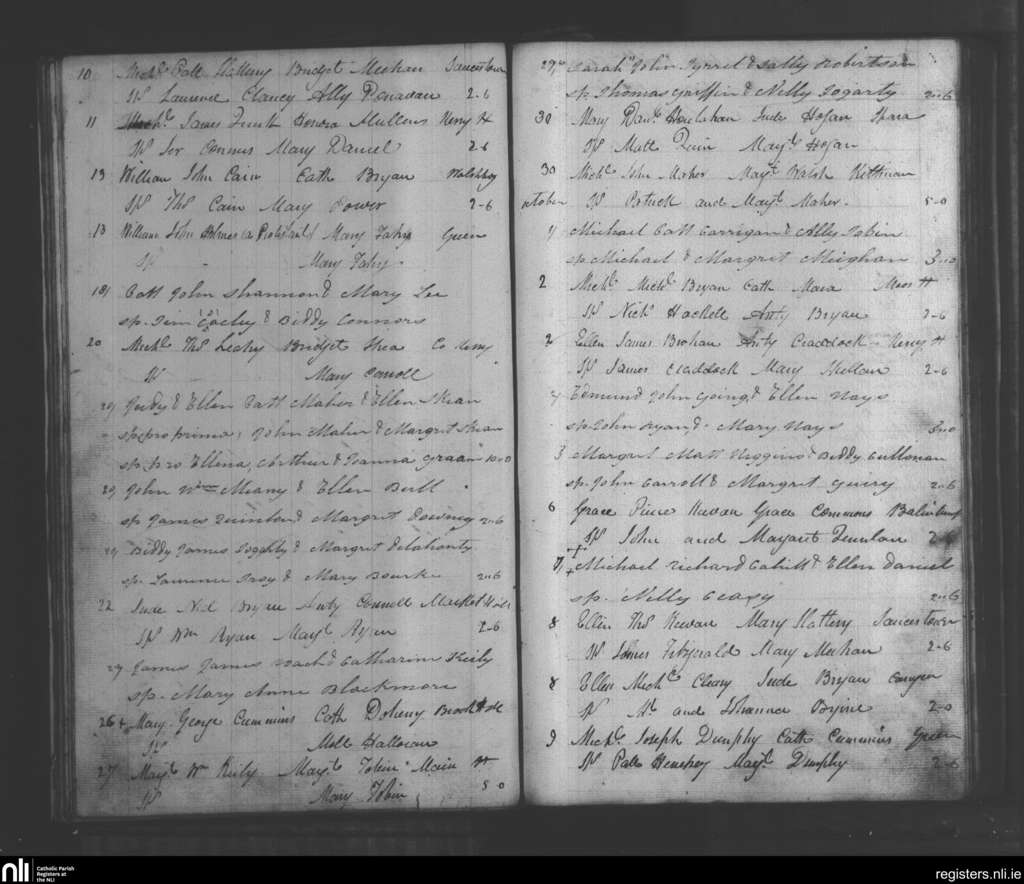 10 Mich.l Patt Slattery Bridget Meehan Saucestown
Sp Laurence Clancy Ally 2-6
11 James Honora Mullons Henry St
Sp Jer Connors Mary Daniel 2-6
13 William John Cain Cath Bryan
Sp Ths Cain Mary Power 2-6
13 William John Holmes (a Protestant) Mary Fahy Green
Sp - Mary Fahy
18 Patt John Shannon & Mary Lee
sp. Tim & Biddy Connors
20 Mich.l Ths Leahy Bridget Shea Co Kerry
Sp Mary Carroll
29 Judy & Ellen Patt Maher & Ellen Mean
sp. pro prima, John Maher & Margret
sp. pro Ellena, Arthur & Joanna 10-0
29 John Wm Meany & Ellen Butl
sp James Quinlan & Margret Downey 2-6
29 Biddy James Fogahty & Margret Delahonty
sp. Laurence Troy & Mary Bourke 2-6
22 Jude Ned Bryan Anty Connell Market
Sp Wm Ryan Mayt Ryan 2-6
27 James James & Catharine Kiely
sp. Mary Anne Blackmore
26 + Mary George Cummins Cath Doheny
Sp Moll Halloran
27 Mayt Wm Kiely Mayt Tobin Main St
Sp Mary Tobin 5 0
29th Sarah John Tyrrel & Sally Robertson
sp. Thomas Griffin & Nelly Fogarty 2-6
30 Mary Danl Houlahan Jude Hogan
Sp Matt Quin Mayt Hogan
30 Michl John Maher Mayt Walsh
October Sp Patrick and Mayt Maher 5-0
1 Michael Patt Carrigan & Ally Tobin
sp. Michael & Margrit Meighan 3-10
2 Michl Michl Bryan Cath Mara Moor St
Sp Nichs Hackett Anty Bryan 2-6
2 Ellen James Brohan Anty Craddock Henry St
Sp James Craddock Mary 2-6
Edmund John Going & Ellen Nays
sp. John Ryan & Mary Nays
3 Margret Matt Higgins & Biddy Cullonan
sp. John Carroll & Margret Guiry 2-6
6 Grace Pierce Keevan Grace Commons
Sp John and Margaret Quinlan 2-6
7 + Michael Richard Cahill & Ellen Daniel
sp. Nelly Cleary 2-6
8 Ellen Ths Keevan Mary Slattery Saucestown
Sp James Fitzgerald Mary Meehan 2-6
8 Ellen Michl Cleary Jude Bryan
Sp Ml and Johanna Byrne 2-0
9 Michl Joseph Dunphy Cath Cummins Green
Sp Patt Mayt Dunphy 2-6
nli
Catholic Parish
Registers at
the NLI
registers.nli.ie